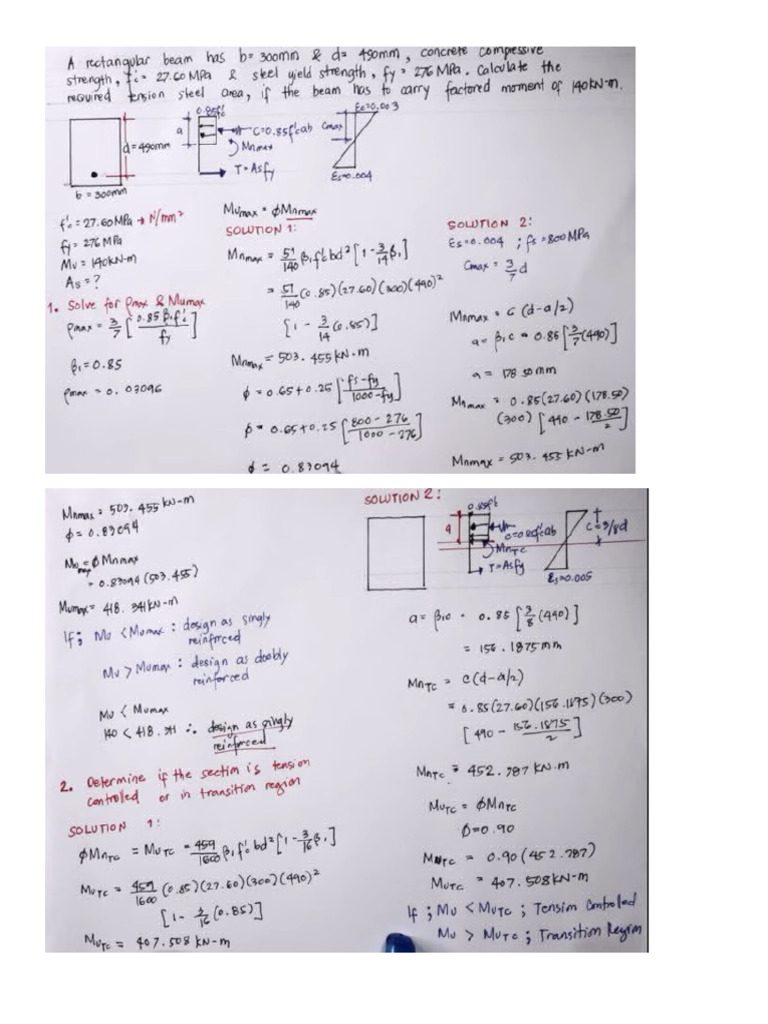 A rectangular beam has b= 300mm & d= 490mm, concrete compressive
strength, f'c= 27.60 MPa & steel yield strength, fy= 276 MPa. Calculate the
required tension steel area, if the beam has to carry factored moment of 140kN-m.
0.85f'c
a
C=0.85f'cab
Mnmax
T=Asfy
d=490mm
b = 300mm
Ec=0.003
Cmax
Es=0.004
f'c = 27.60 MPa → N/mm²
fy = 276 MPa
Mu = 140kN-m
As = ?
1. Solve for ρmax & Mumax
ρmax = 3/7 [0.85 β1 f'c / fy]
β1 = 0.85
ρmax = 0.03096
Mumax = φMnmax
SOLUTION 1:
Mnmax = 51/140 β1 f'c bd² [1 - 3/14 β1]
= 51/140 (0.85)(27.60)(300)(490)²
[1 - 3/14 (0.85)]
Mnmax = 503.455 kN-m
φ = 0.65 + 0.25 [fs-fy / 1000-fy]
φ = 0.65 + 0.25 [800-276 / 1000-276]
φ = 0.83094
SOLUTION 2:
Es = 0.004 ; fs = 800 MPa
Cmax = 3/7 d
Mnmax = C (d-a/2)
a = β1c = 0.85 [3/7 (490)]
a = 178.50 mm
Mnmax = 0.85(27.60)(178.50)
(300) [490 - 178.50/2]
Mnmax = 503.455 kN-m
Mnmax = 503.455 kN-m
φ = 0.83094
Mumax = φMnmax
= 0.83094 (503.455)
Mumax = 418.341 kN-m
If ; Mu < Mumax : design as singly
reinforced
Mu > Mumax : design as doubly
reinforced
Mu < Mumax
140 < 418.341 ∴ design as singly
reinforced
2. Determine if the section is tension
controlled or in transition region
SOLUTION 1:
φMnTC = MuTC = 459/1600 β1 f'c bd² [1 - 3/16 β1]
MuTC = 459/1600 (0.85)(27.60)(300)(490)²
[1 - 3/16 (0.85)]
MuTC = 407.508 kN-m
SOLUTION 2:
0.85f'c
a
C=0.85f'cab
MnTC
T=Asfy
C=3/8d
Es=0.005
a = β1c = 0.85 [3/8 (490)]
= 156.1875 mm
MnTC = C(d-a/2)
= 0.85(27.60)(156.1875)(300)
[490 - 156.1875/2]
MnTC = 452.787 kN.m
MuTC = φMnTC
φ = 0.90
MuTC = 0.90(452.787)
MuTC = 407.508 kN-m
If ; Mu < MuTC ; Tension Controlled
Mu > MuTC ; Transition Region